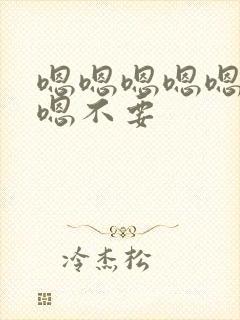 嗯嗯嗯嗯嗯
嗯不要
冷杰松